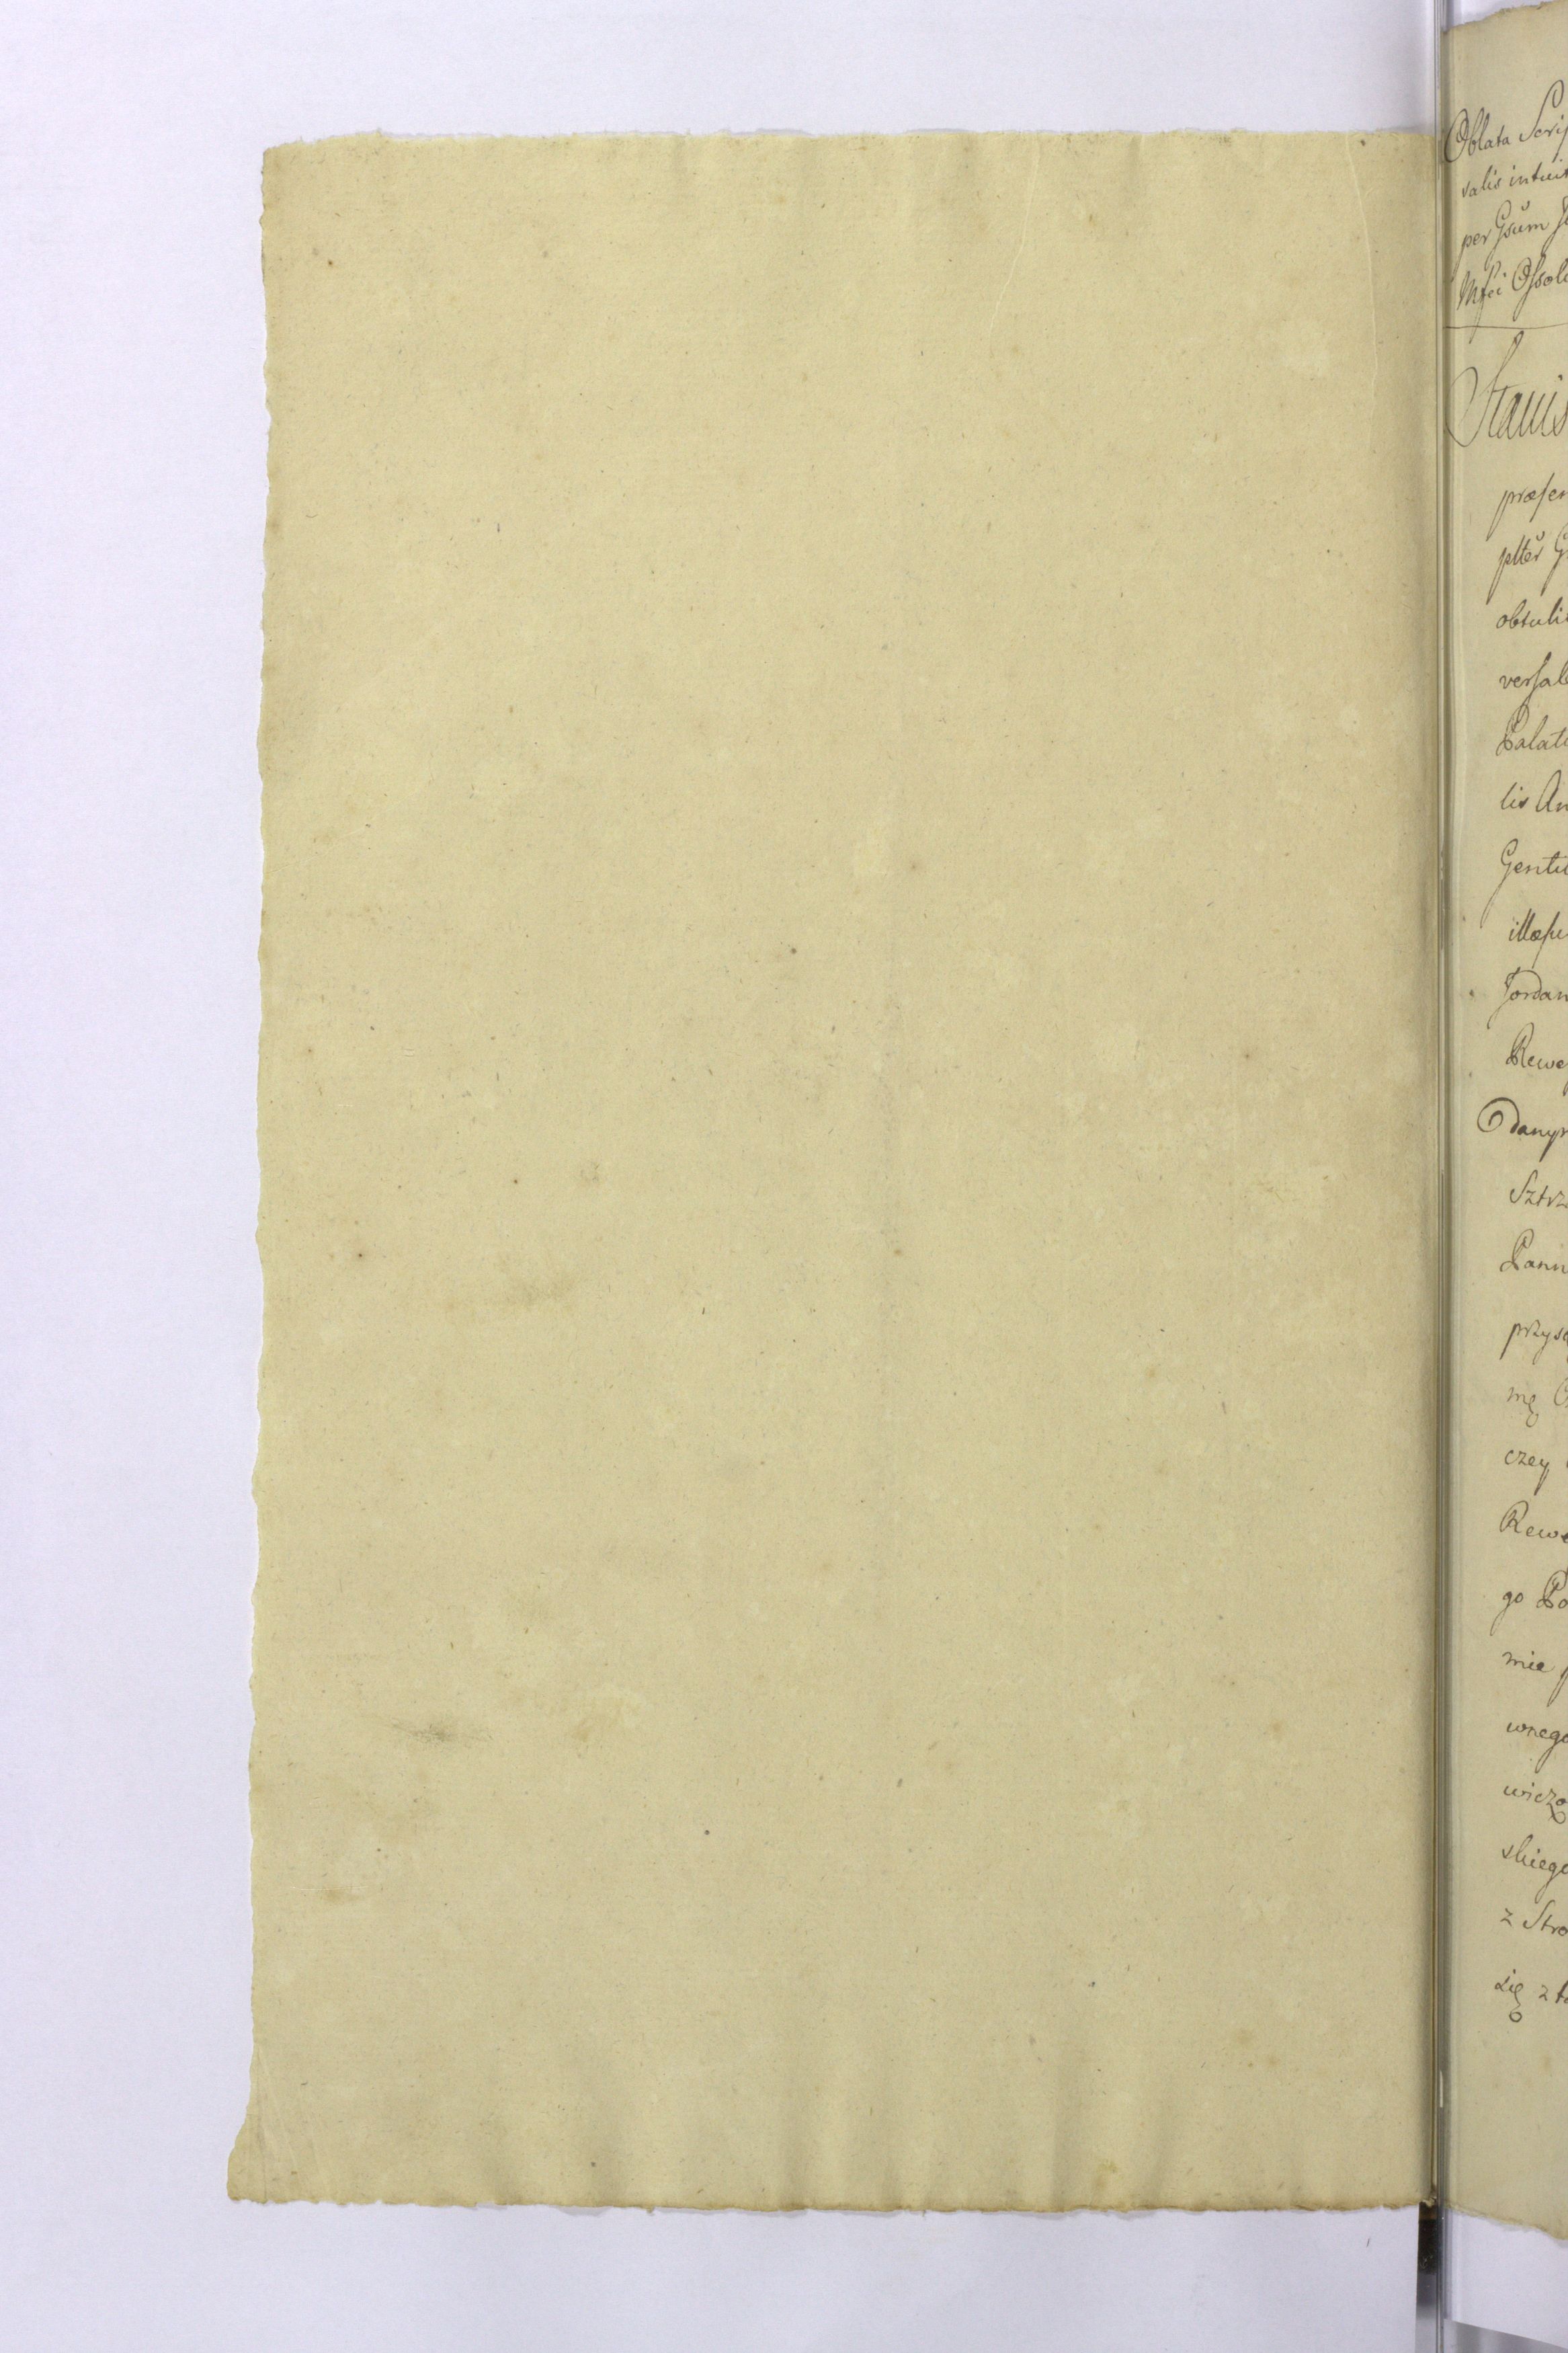 Oblata Scrip
valis intuit
per Gsum J
Mfci Ossol
Stanis
præsen
pltěr G
obtuli
versale
Palati
lis An
Gentil
illæsu
Jordan
Rewe
Odanym
Sztrz
Pann
przysą
mę
czey
Rewe
go Po
mie p
wnego
wiczo
skiego
z Stro
się z t